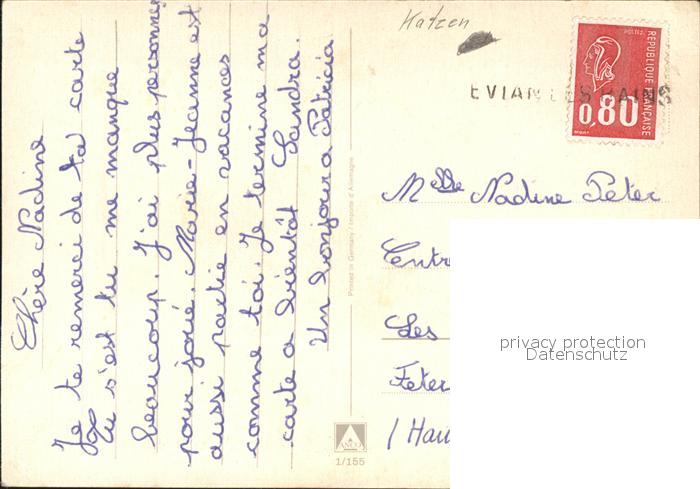 Chère Nadine
Je te remerci de ta carte
tu s'est tu me manque
beaucoup. J'ai plus personne
pour jouié. Marie-Jeanne est
aussi partie en vacances
comme toi. Je termine ma
carte a bientôt Sandra.
Un bonjour a Patricia
Katzen
POSTES
RÉPUBLIQUE FRANÇAISE
0,80
EVIAN LES BAINS
Melle Nadine Peter
Les
Feter
Printed in Germany / Importé d'Allemagne
ANCO
1/155
privacy protection
Datenschutz